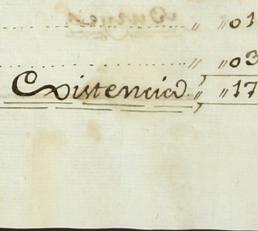 „ „01
„ „03
Existencia „ „17